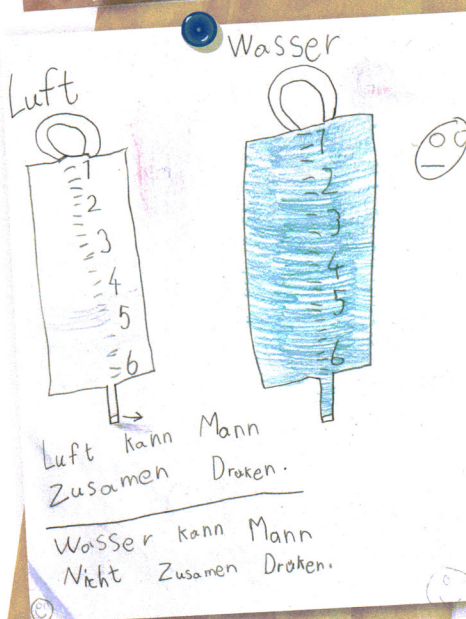 Luft
Wasser
1
2
3
4
5
6
1
2
3
4
5
6
Luft kann Mann
Zusamen Druken.
Wasser kann Mann
Nicht Zusamen Druken.